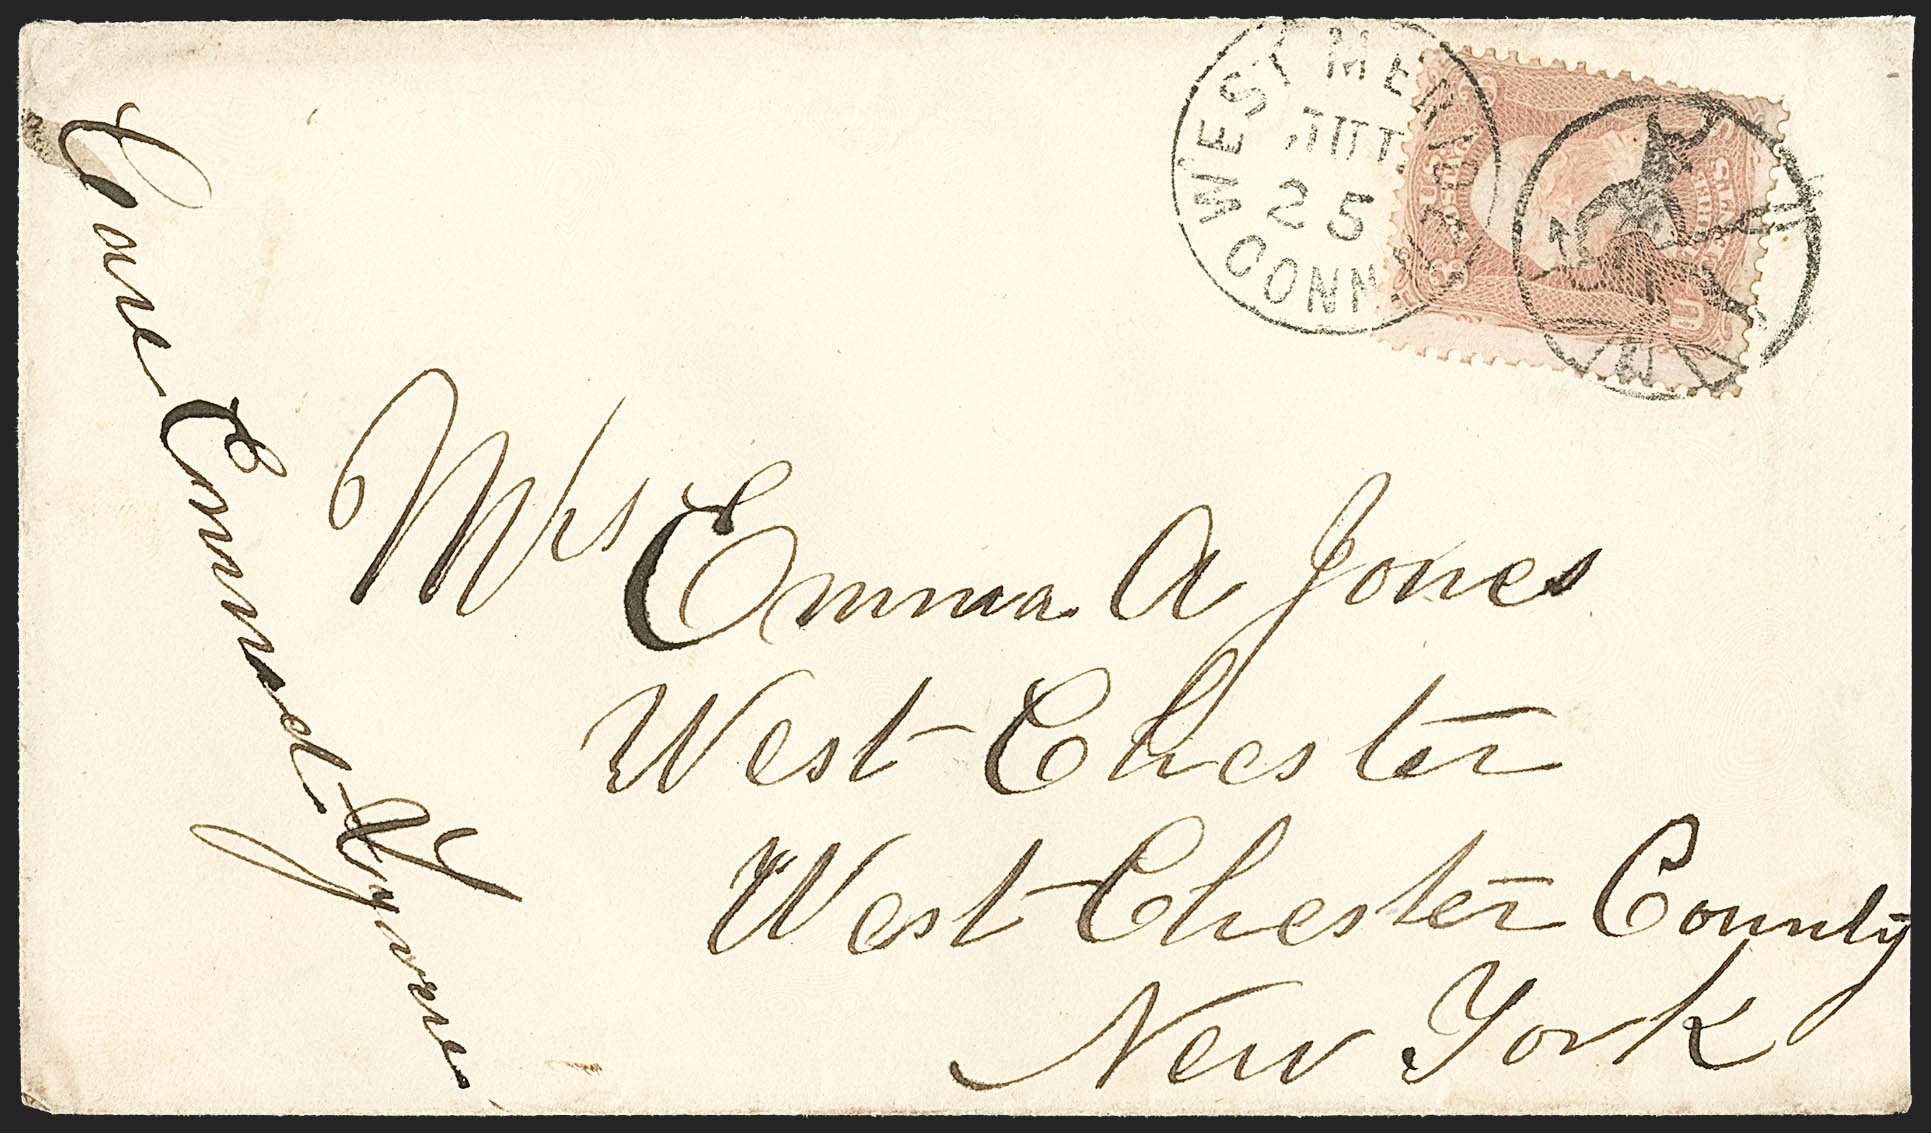 WEST MERIDEN
JUL
25
CONN.
Care Ernest Hynne
Mrs Emma A Jones
West Chester
West Chester County
New York